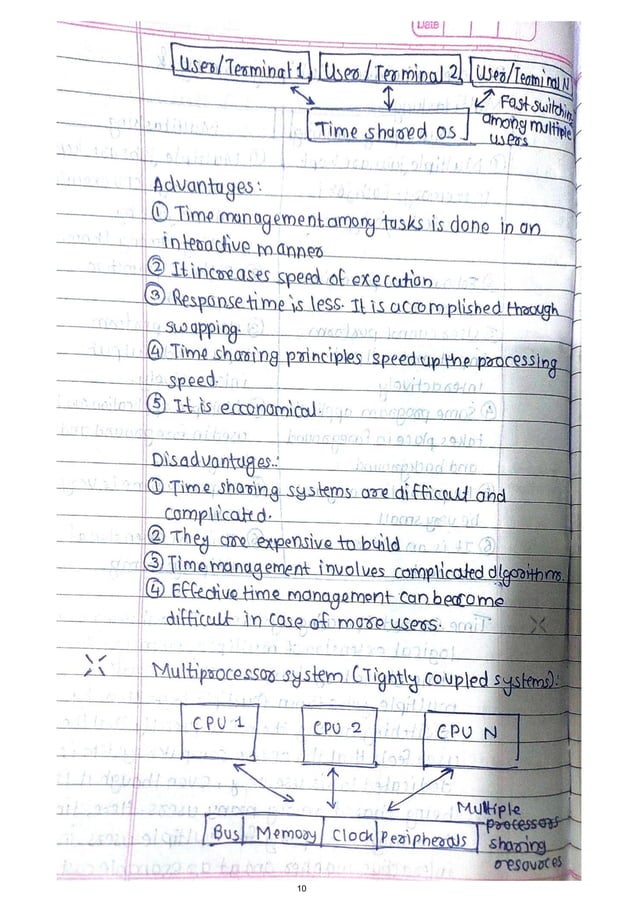 Date
User/Terminal 1 User/Terminal 2 User/Terminal N
Fast switching
among multiple
users
Time shared OS
Advantages:
① Time management among tasks is done in an
interactive manner
② It increases speed of execution
③ Response time is less. It is accomplished through
swapping.
④ Time sharing principles speed up the processing
speed.
⑤ It is ecconomical.
Disadvantages:
① Time sharing systems are difficult and
complicated.
② They are expensive to build
③ Time management involves complicated algorithms.
④ Effective time management can become
difficult in case of more users.
Multiprocessor system (Tightly coupled systems):
CPU 1 CPU 2 CPU N
Bus Memory Clock Peripherals
Multiple
processors
sharing
resources
10